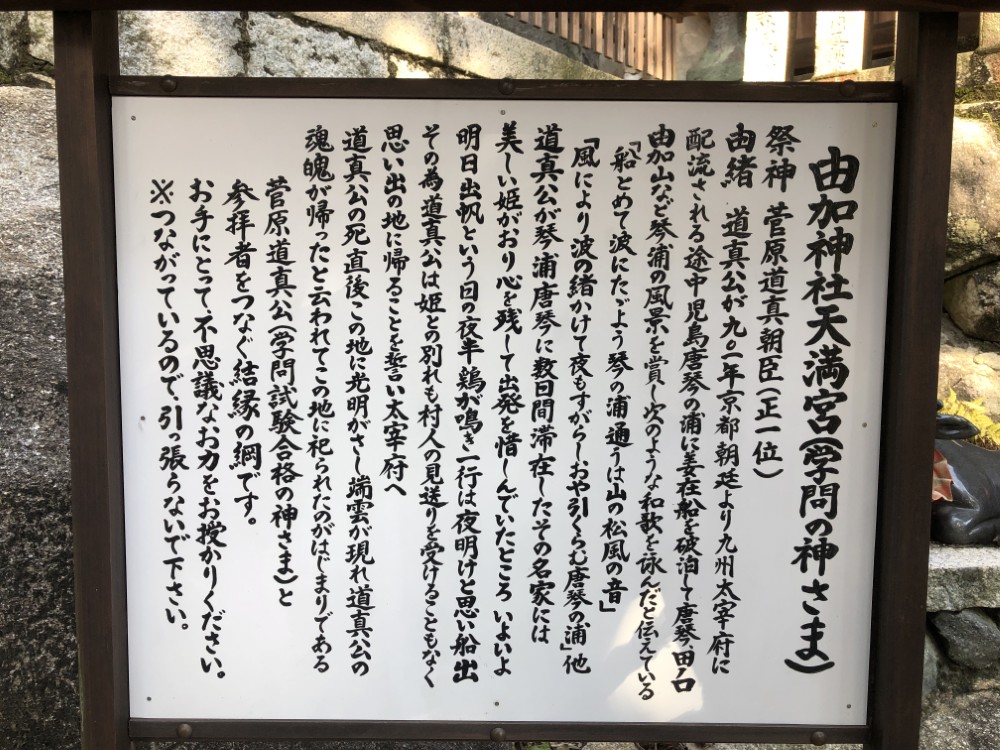 由加神社天満宮(学問の神さま)
祭神 菅原道真朝臣(正一位)
由緒 道真公が九〇一年京都朝廷より九州太宰府に
配流される途中児島唐琴の浦に御在船を碇泊して唐琴、田ノ口
由加山など琴浦の風景を賞し次のような和歌を詠んだと伝えている
「船とめて波にたゞよう琴の浦通うは山の松風の音」
「風により波の緒かけて夜もすがらしおや引くらむ唐琴の浦」他
道真公が琴浦唐琴に数日間滞在したその名家には
美しい姫がおり心を残して出発を惜しんでいたところ いよいよ
明日出帆という日の夜半鶏が鳴き一行は夜明けと思い船出
その為道真公は姫との別れも村人の見送りを受けることもなく
思い出の地に帰ることを誓い太宰府へ
道真公の死直後この地に光明がさし端雲が現れ道真公の
魂魄が帰ったと云われてこの地に祀られたのがはじまりである
菅原道真公(学問試験合格の神さま)と
参拝者をつなぐ結縁の綱です。
お手にとって、不思議なお力をお授かりください。
※つながっているので、引っ張らないで下さい。